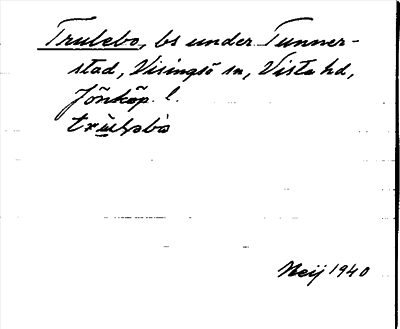 Trulebo, bs under Tunner-
stad, Visingsö sn, Vista hd,
Jönköp. l.
Neij 1940